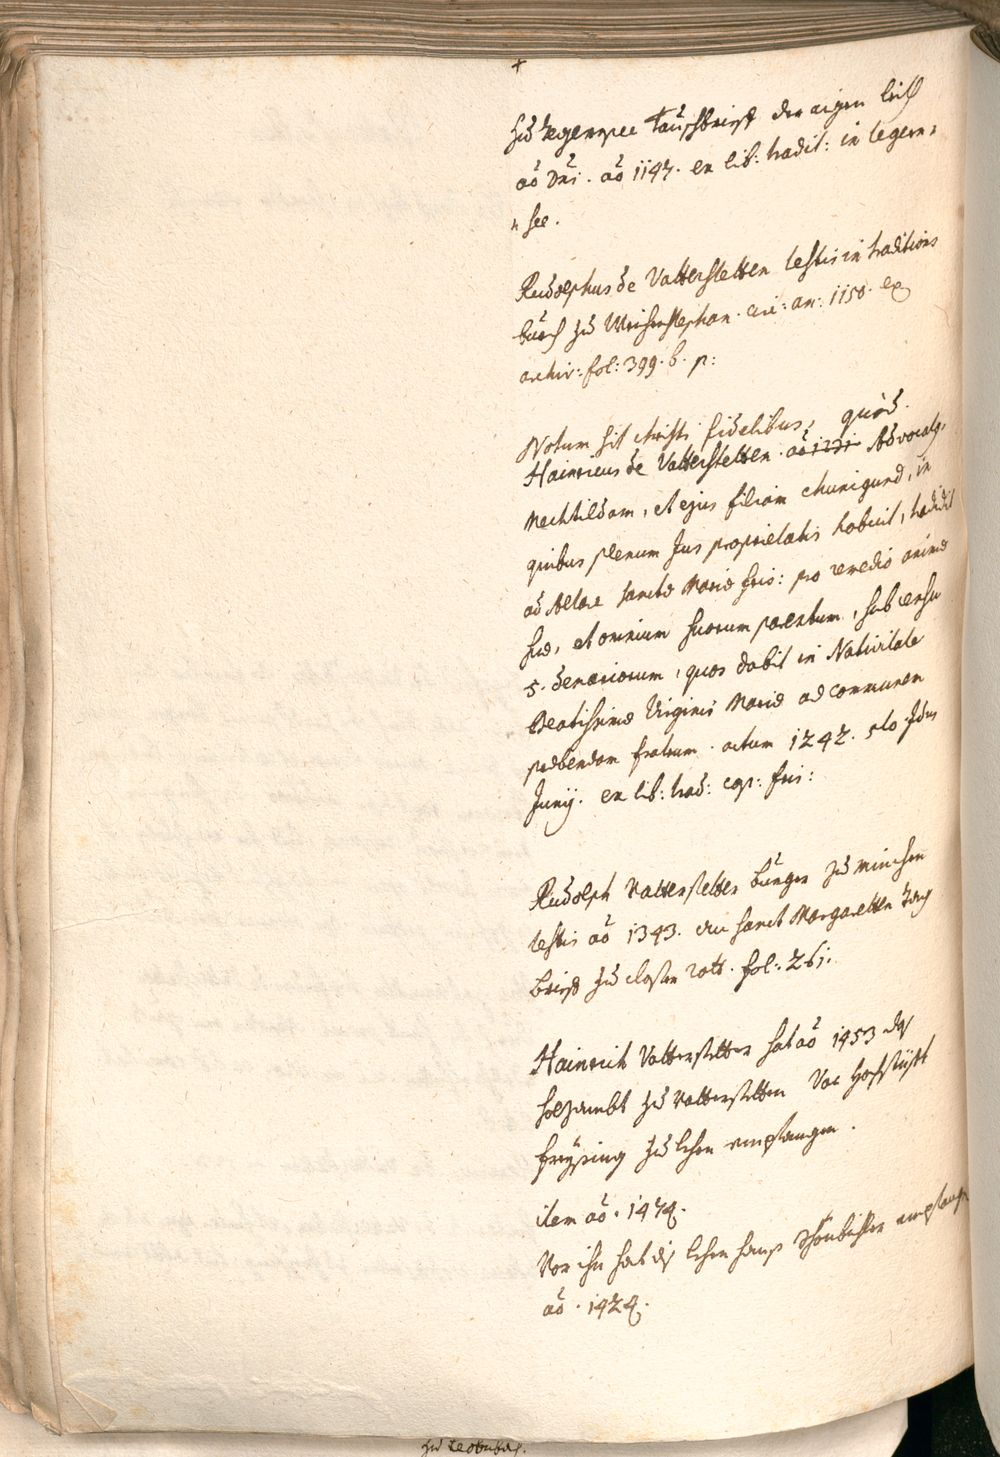 +
zu Tegernsee Tauschbrieff der aigen leith
aō Dn̄i. aō 1147. ex lib: tradit: in Tegern=
" see.
Rudolphus de Vatterstetten testis in traditions
buech zu Weihenstephan. circ: an: 1150. ex
archiv: fol: 399. b. p:
Notum sit christi fidelibus, quod
Hainricus de Vatterstetten aō 1231 Advocatg.
Mechtildam, et ejus filiam Chunigund, in
quibus plenum Jus proprietatis habuit, tradidit
ad Altare Sanctæ Mariæ fris: pro remedio animæ
suæ, et omnium suorum parentum, sub censu
5. denariorum, quos dabit in Nativitate
Beatissimæ Virginis Mariæ ad communem
præbendam fratrum. actum 1242. 5to Idus
Junij. ex lib: trad: cap: fris:
Rudolph Vatterstetter burger zu München
testis aō 1343. an Sanct Margaretten Tag
brieff zu closter rott. fol: 261.
Hainrich Vatterstetter hat aō 1453 das
holzambt zu Vatterstetten Von Hochstüfft
Freÿsing zu lehen empfangen.
item aō. 1474.
Vor ihn hat dis lehen hans empfangen
aō. 1424.